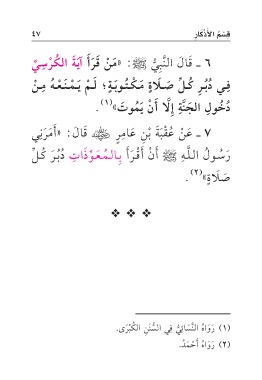 قِسْمُ الْأَذْكَارِ ٤٧
٦ - قَالَ النَّبِيُّ ﷺ: «مَنْ قَرَأَ آيَةَ الْكُرْسِيِّ
فِي دُبُرِ كُلِّ صَلَاةٍ مَكْتُوبَةٍ؛ لَمْ يَمْنَعْهُ مِنْ
دُخُولِ الجَنَّةِ إِلَّا أَنْ يَمُوتَ»(١).
٧ - عَنْ عُقْبَةَ بْنِ عَامِرٍ رضي الله عنه قَالَ: «أَمَرَنِي
رَسُولُ اللَّهِ ﷺ أَنْ أَقْرَأَ بِالمُعَوِّذَاتِ دُبُرَ كُلِّ
صَلَاةٍ»(٢).
(١) رَوَاهُ النَّسَائِيُّ فِي السُّنَنِ الْكُبْرَى.
(٢) رَوَاهُ أَحْمَدُ.